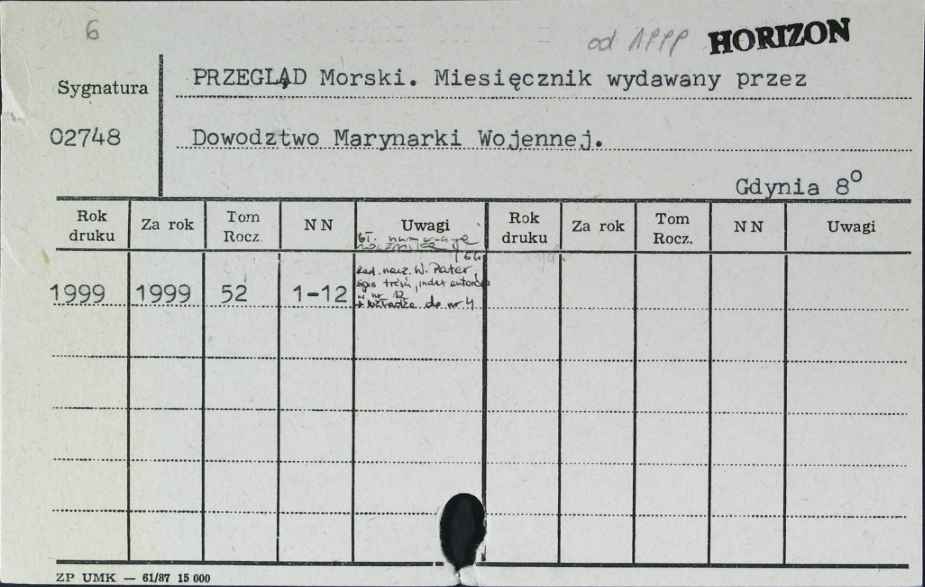 6
od APPP HORIZON
Sygnatura
PRZEGLĄD Morski. Miesięcznik wydawany przez
02748
Dowodztwo Marynarki Wojennej.
Gdynia 8°
Rok druku Za rok Tom Rocz. N N Uwagi Rok druku Za rok Tom Rocz. N N Uwagi
Red. nacz. W. Pater,
spis treści, indeks autorów
w nr 12
1999 1999 52 1-12
do nr 4
ZP UMK — 61/87 15 000